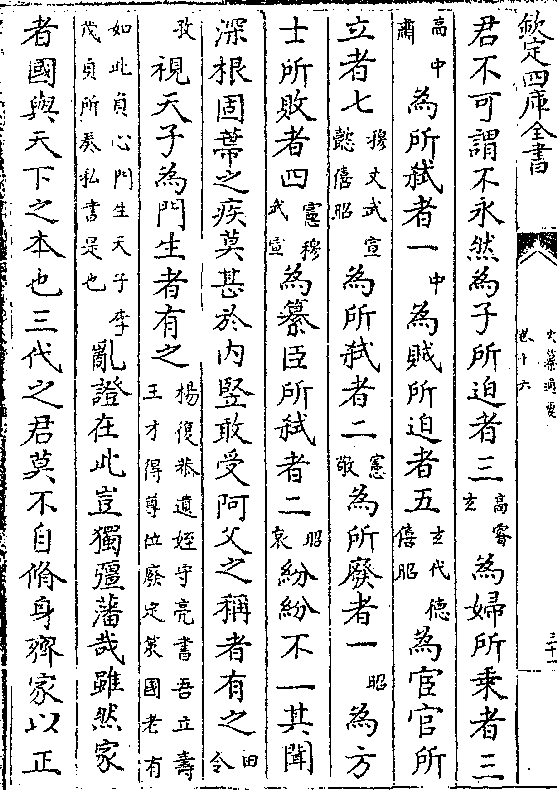 欽定四庫全書
卷十六
三十一
君不可謂不永然為子所迫者三高睿玄為婦所乗者三
高中肅為所弑者一中為賊所迫者五玄代德僖昭為宦官所
立者七穆文武宣懿僖昭為所弑者二憲敬為所廢者一昭為方
士所敗者四憲穆武宣為纂臣所弑者二昭哀紛紛不一其聞
深根固蔕之疾莫甚於内竪敢受阿父之稱者有之田令
孜視天子為門生者有之楊復恭遺姪守亮書吾立壽王才得尊位廢定策國老有
如此負心門生天子李茂貞所奏私書是也亂證在此豈獨彊藩哉雖然家
者國與天下之本也三代之君莫不自脩身齊家以正